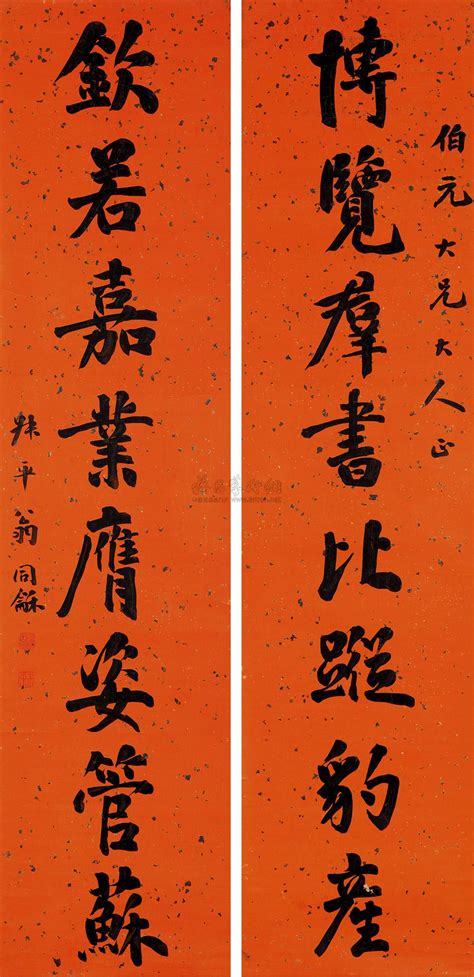 伯元大兄大人正
博覽群書比蹤豹產
欽若嘉業膺姿管蘇
叔平翁同龢